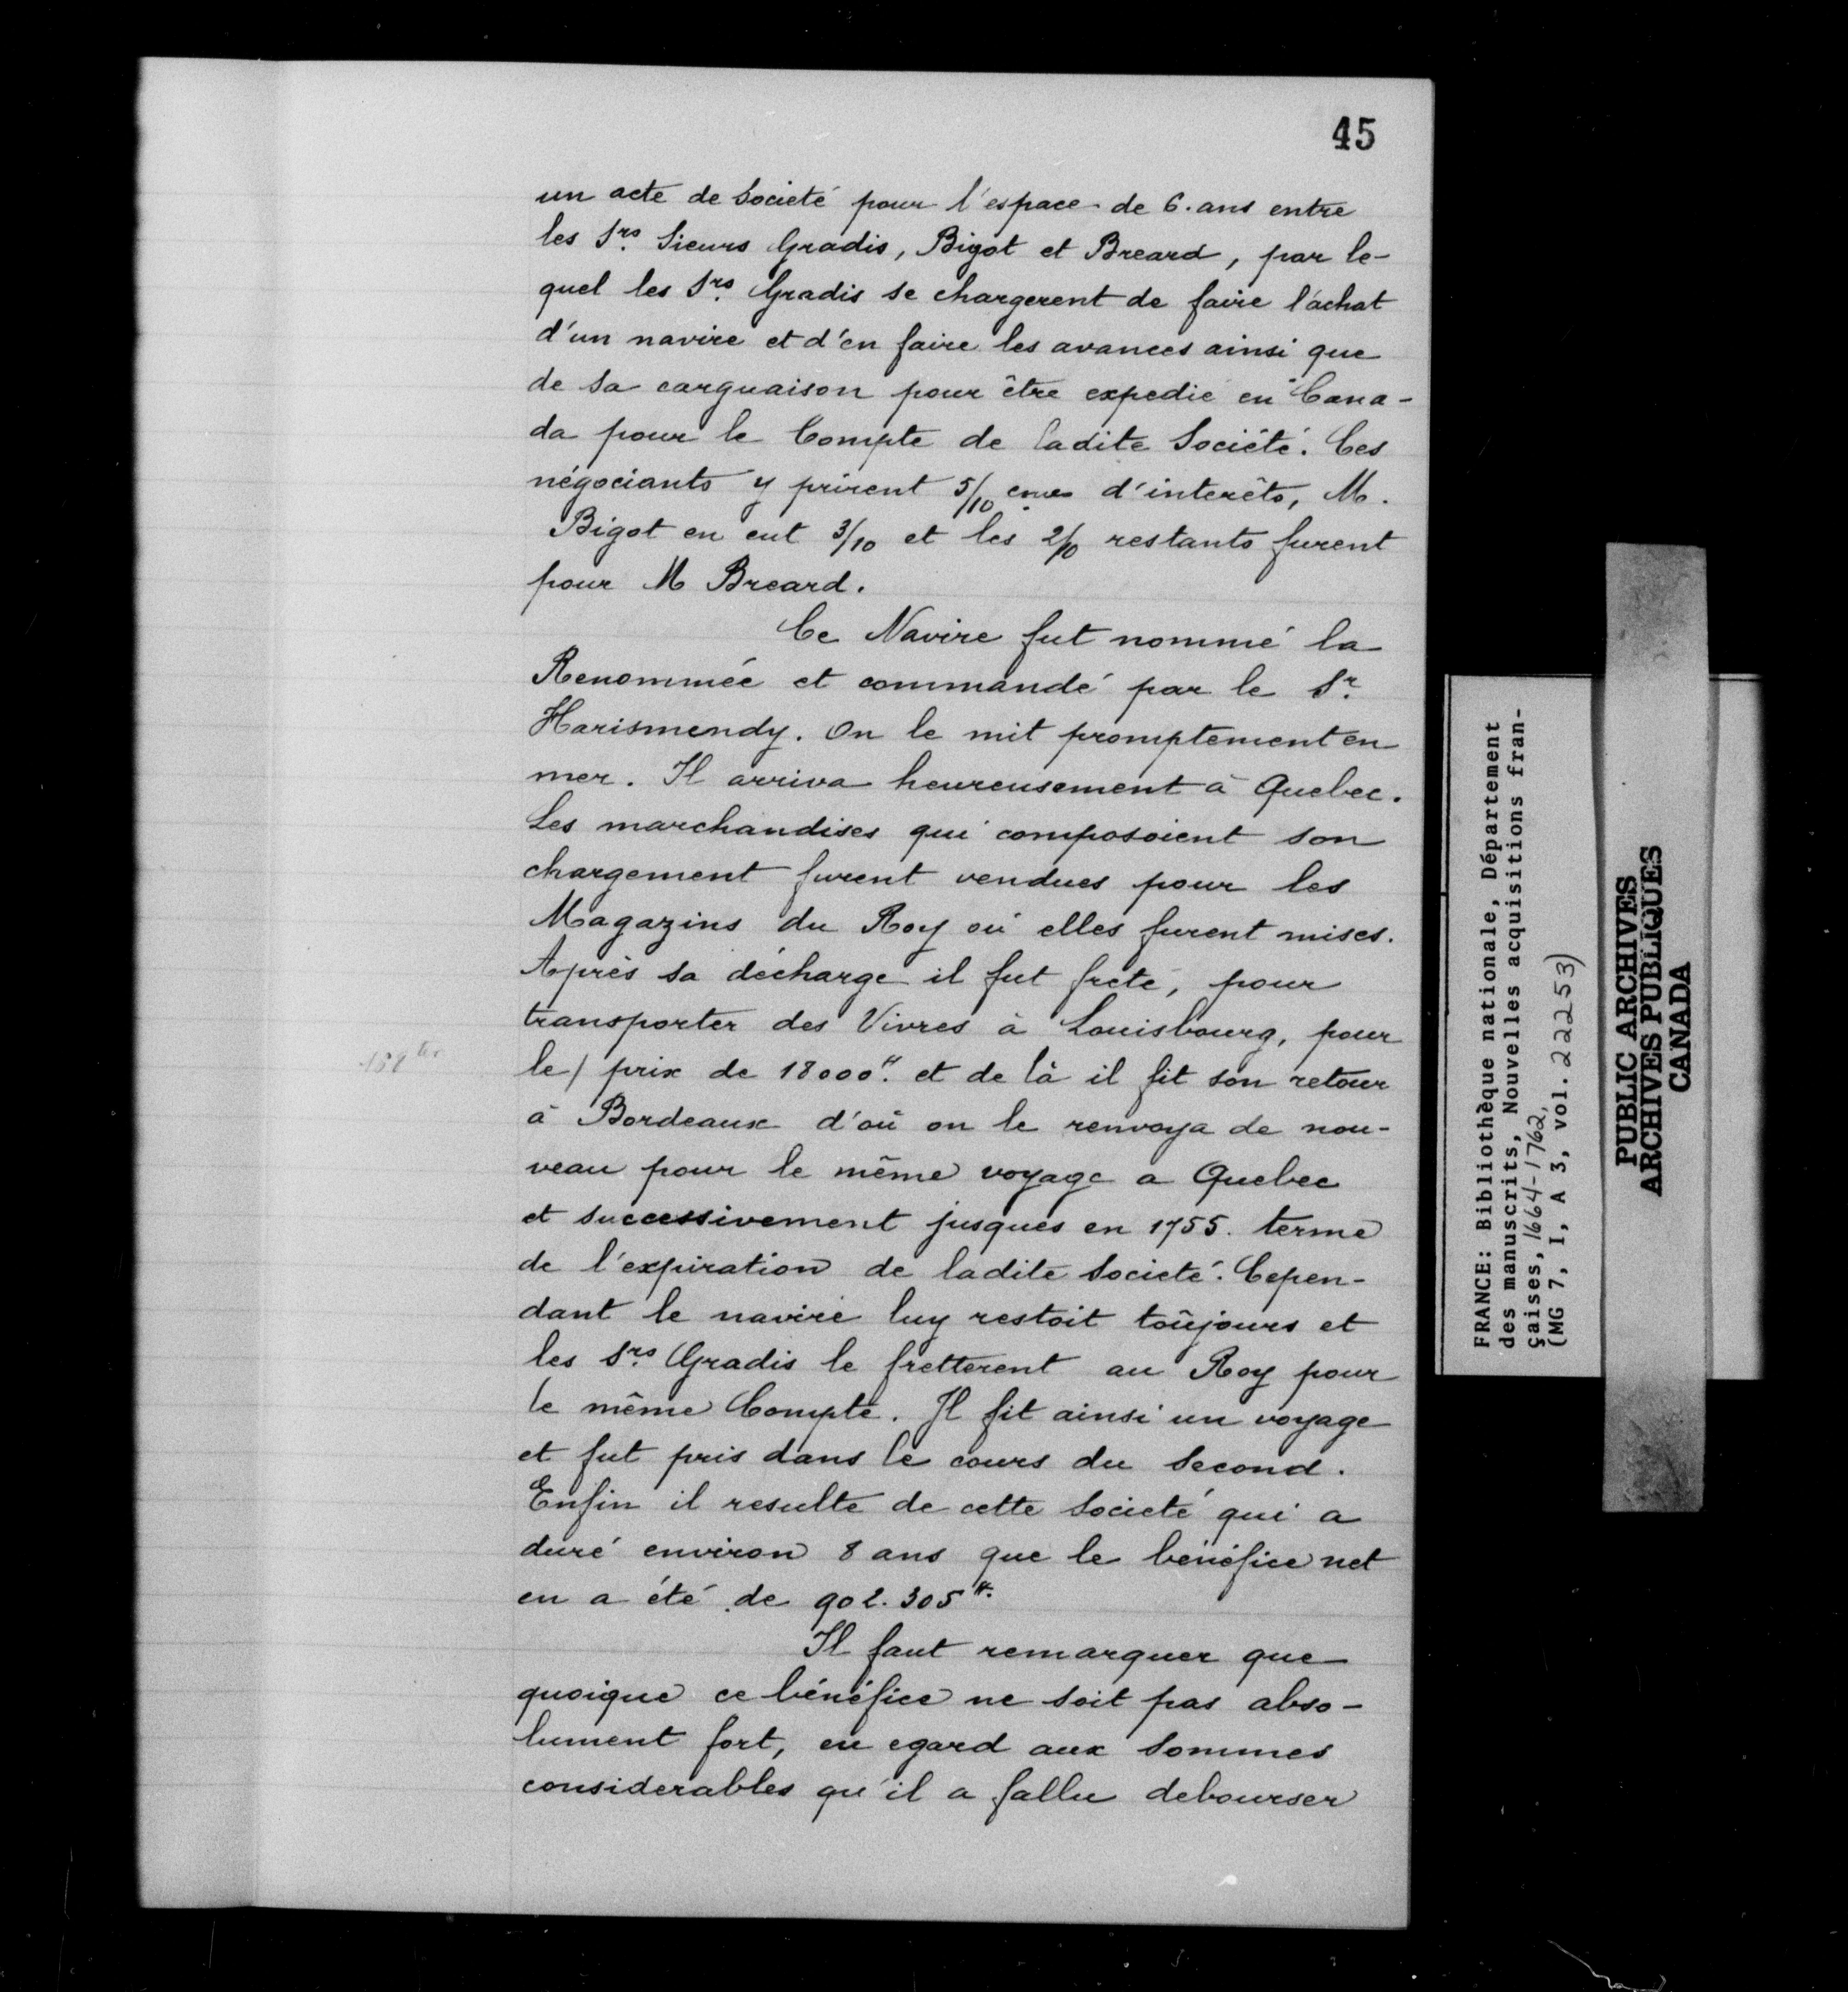 45
un acte de Societé pour l'espace de 6. ans entre
les Srs. Sieurs Gradis, Bigot et Breard, par le-
quel les Srs. Gradis se chargerent de faire l'achat
d'un navire et d'en faire les avances ainsi que
de sa carguaison pour être expedié en Cana-
da pour le Compte de ladite Société. Ces
négociants y prirent 5/10 emes d'interêts, M.
Bigot en eut 3/10 et les 2/10 restants furent
pour M Breard.
Ce Navire fut nommé la
Renommée et commandé par le Sr.
Harismendy. On le mit promptement en
mer. Il arriva heureusement à Quebec.
Les marchandises qui composoient son
chargement furent vendues pour les
Magazins du Roy où elles furent mises.
Après sa décharge il fut freté, pour
transporter des Vivres à Louisbourg, pour
le / prix de 18000ᵗᵗ. et de là il fit son retour
à Bordeaux d'où on le renvoya de nou-
veau pour le même voyage a Quebec
et successivement jusques en 1755. terme
de l'expiration de ladite Societé. Cepen-
dant le navire luy restoit toûjours et
les Srs. Gradis le fretterent au Roy pour
le même Compte. Il fit ainsi un voyage
et fut pris dans le cours du Second.
Enfin il resulte de cette Societé qui a
duré environ 8 ans que le bénéfice net
en a été de 902.305ᵗᵗ.
Il faut remarquer que
quoique ce bénéfice ne soit pas abso-
lument fort, eu egard aux Sommes
considerables qu'il a fallu debourser
FRANCE: Bibliothèque nationale, Département
des manuscrits, Nouvelles acquisitions fran-
çaises, 1664-1762,
(MG 7, I, A 3, vol. 22253)
PUBLIC ARCHIVES
ARCHIVES PUBLIQUES
CANADA